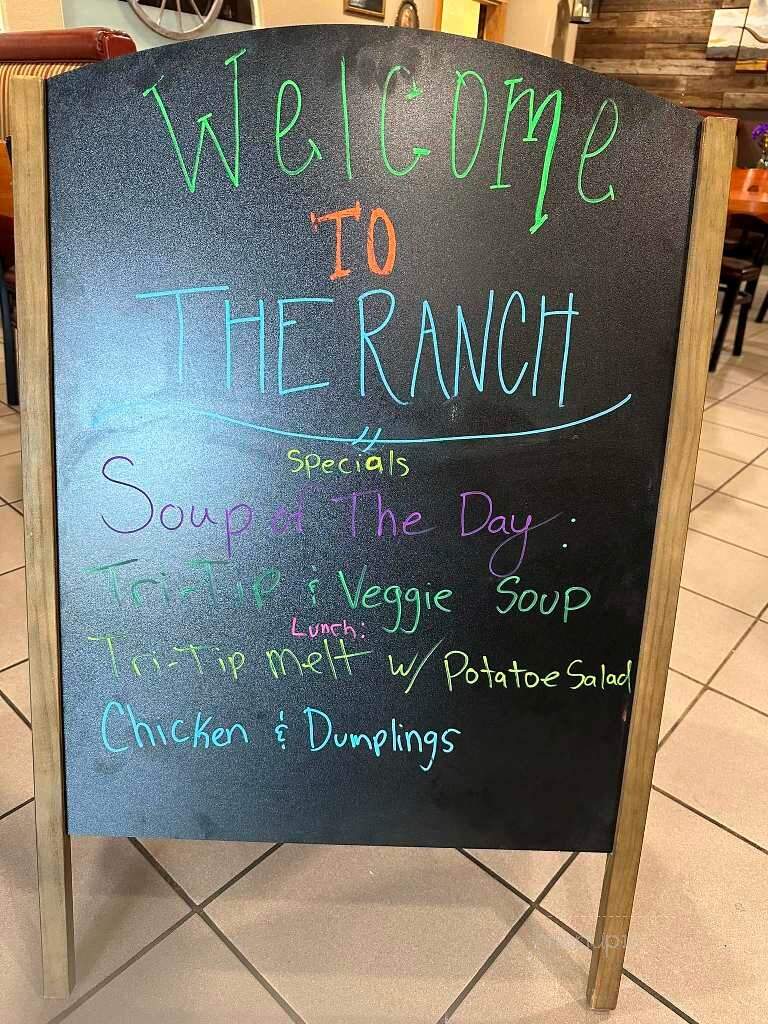 Welcome
TO
THE RANCH
Specials
Soup of The Day:
Tri-Tip & Veggie Soup
Lunch:
Tri-Tip melt w/ Potatoe Salad
Chicken & Dumplings